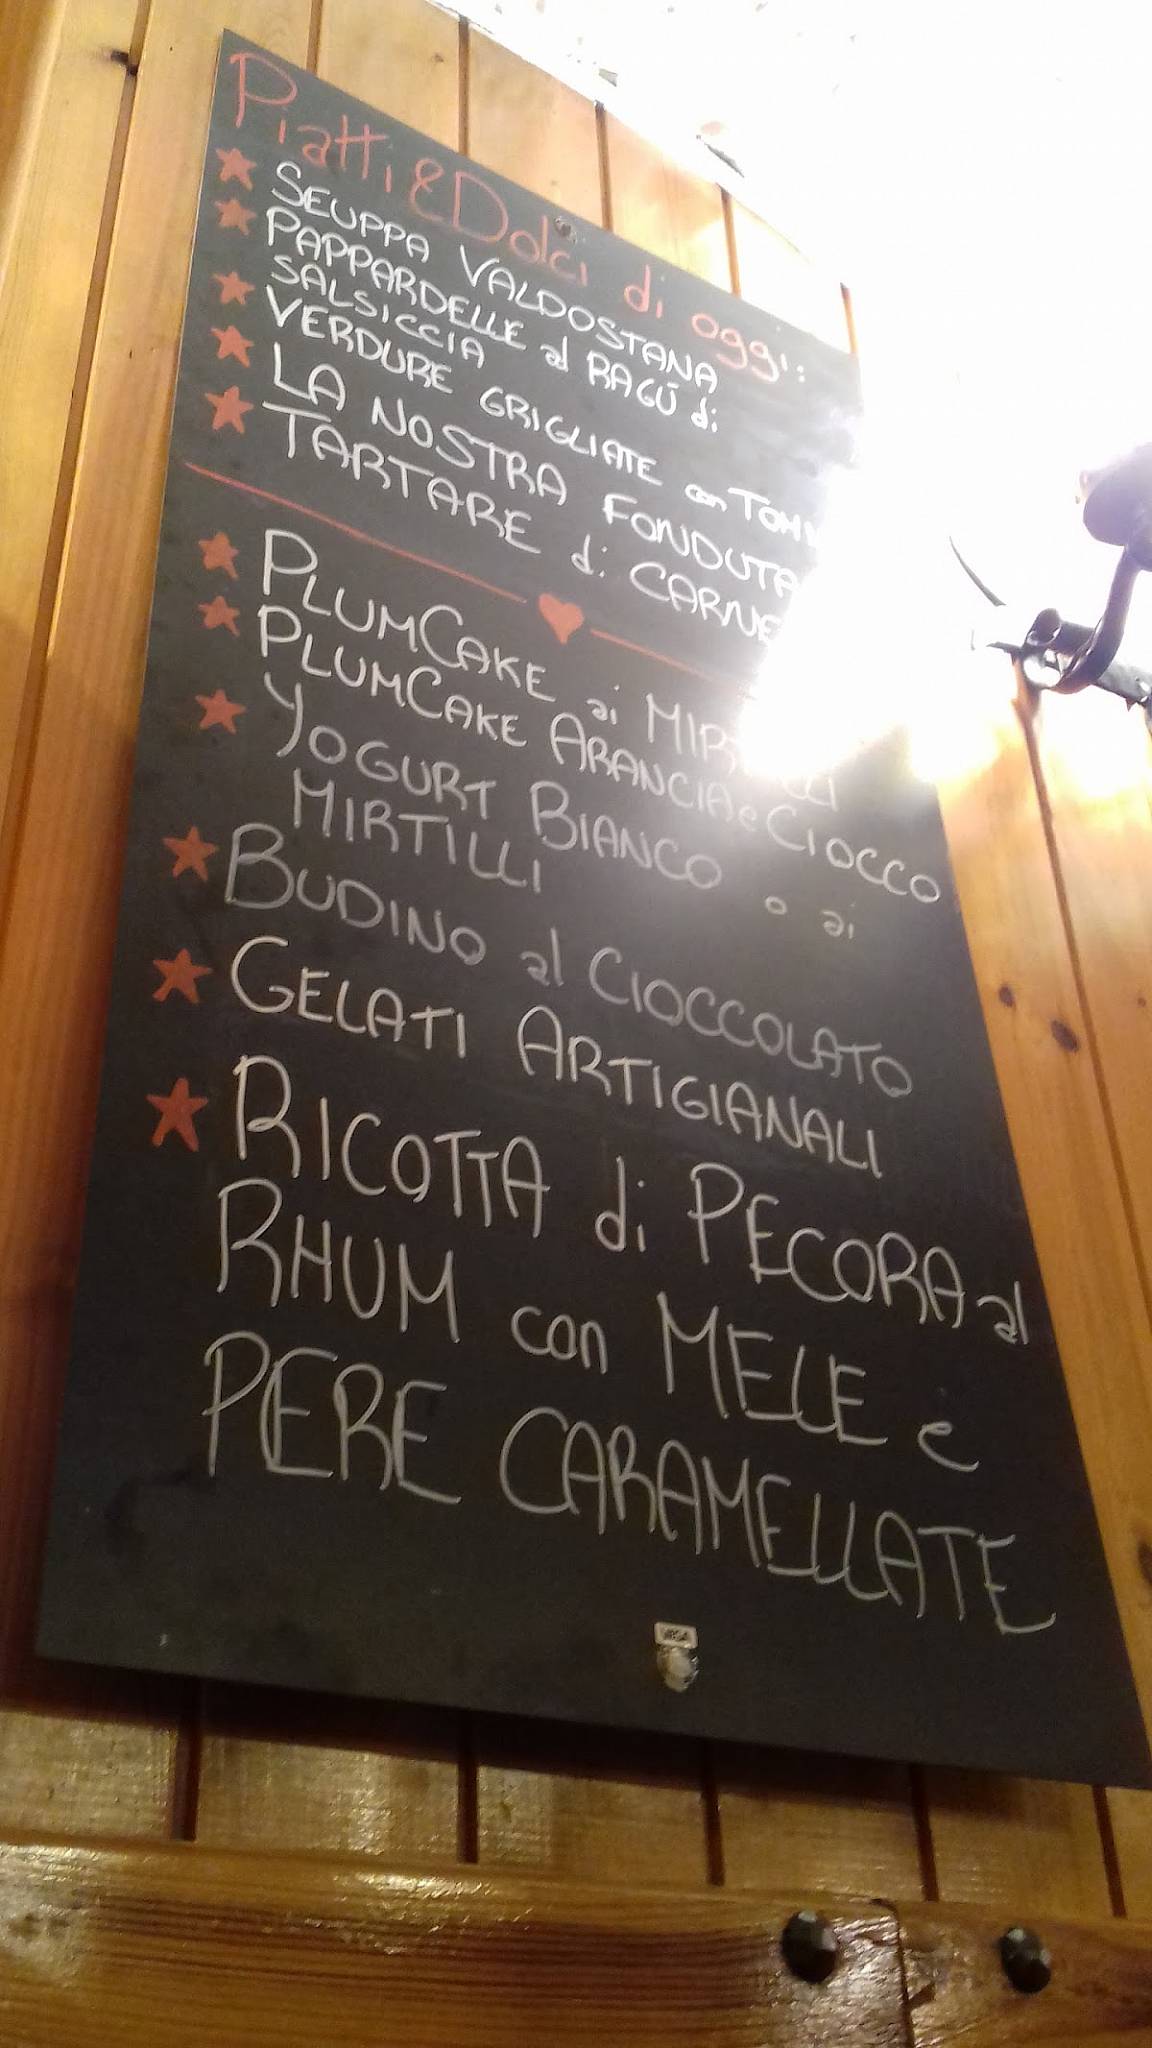 Piatti & Dolci di oggi:
SEUPPA VALDOSTANA
PAPPARDELLE al RAGÙ di
SALSICCIA
VERDURE GRIGLIATE con
LA NOSTRA FONDUTA
TARTARE di CARNE
PLUMCAKE ai MIRTILLI
PLUMCAKE ARANCIA e CIOCCO
YOGURT BIANCO o ai
MIRTILLI
BUDINO al CIOCCOLATO
GELATI ARTIGIANALI
RICOTTA di PECORA al
RHUM con MELE e
PERE CARAMELLATE